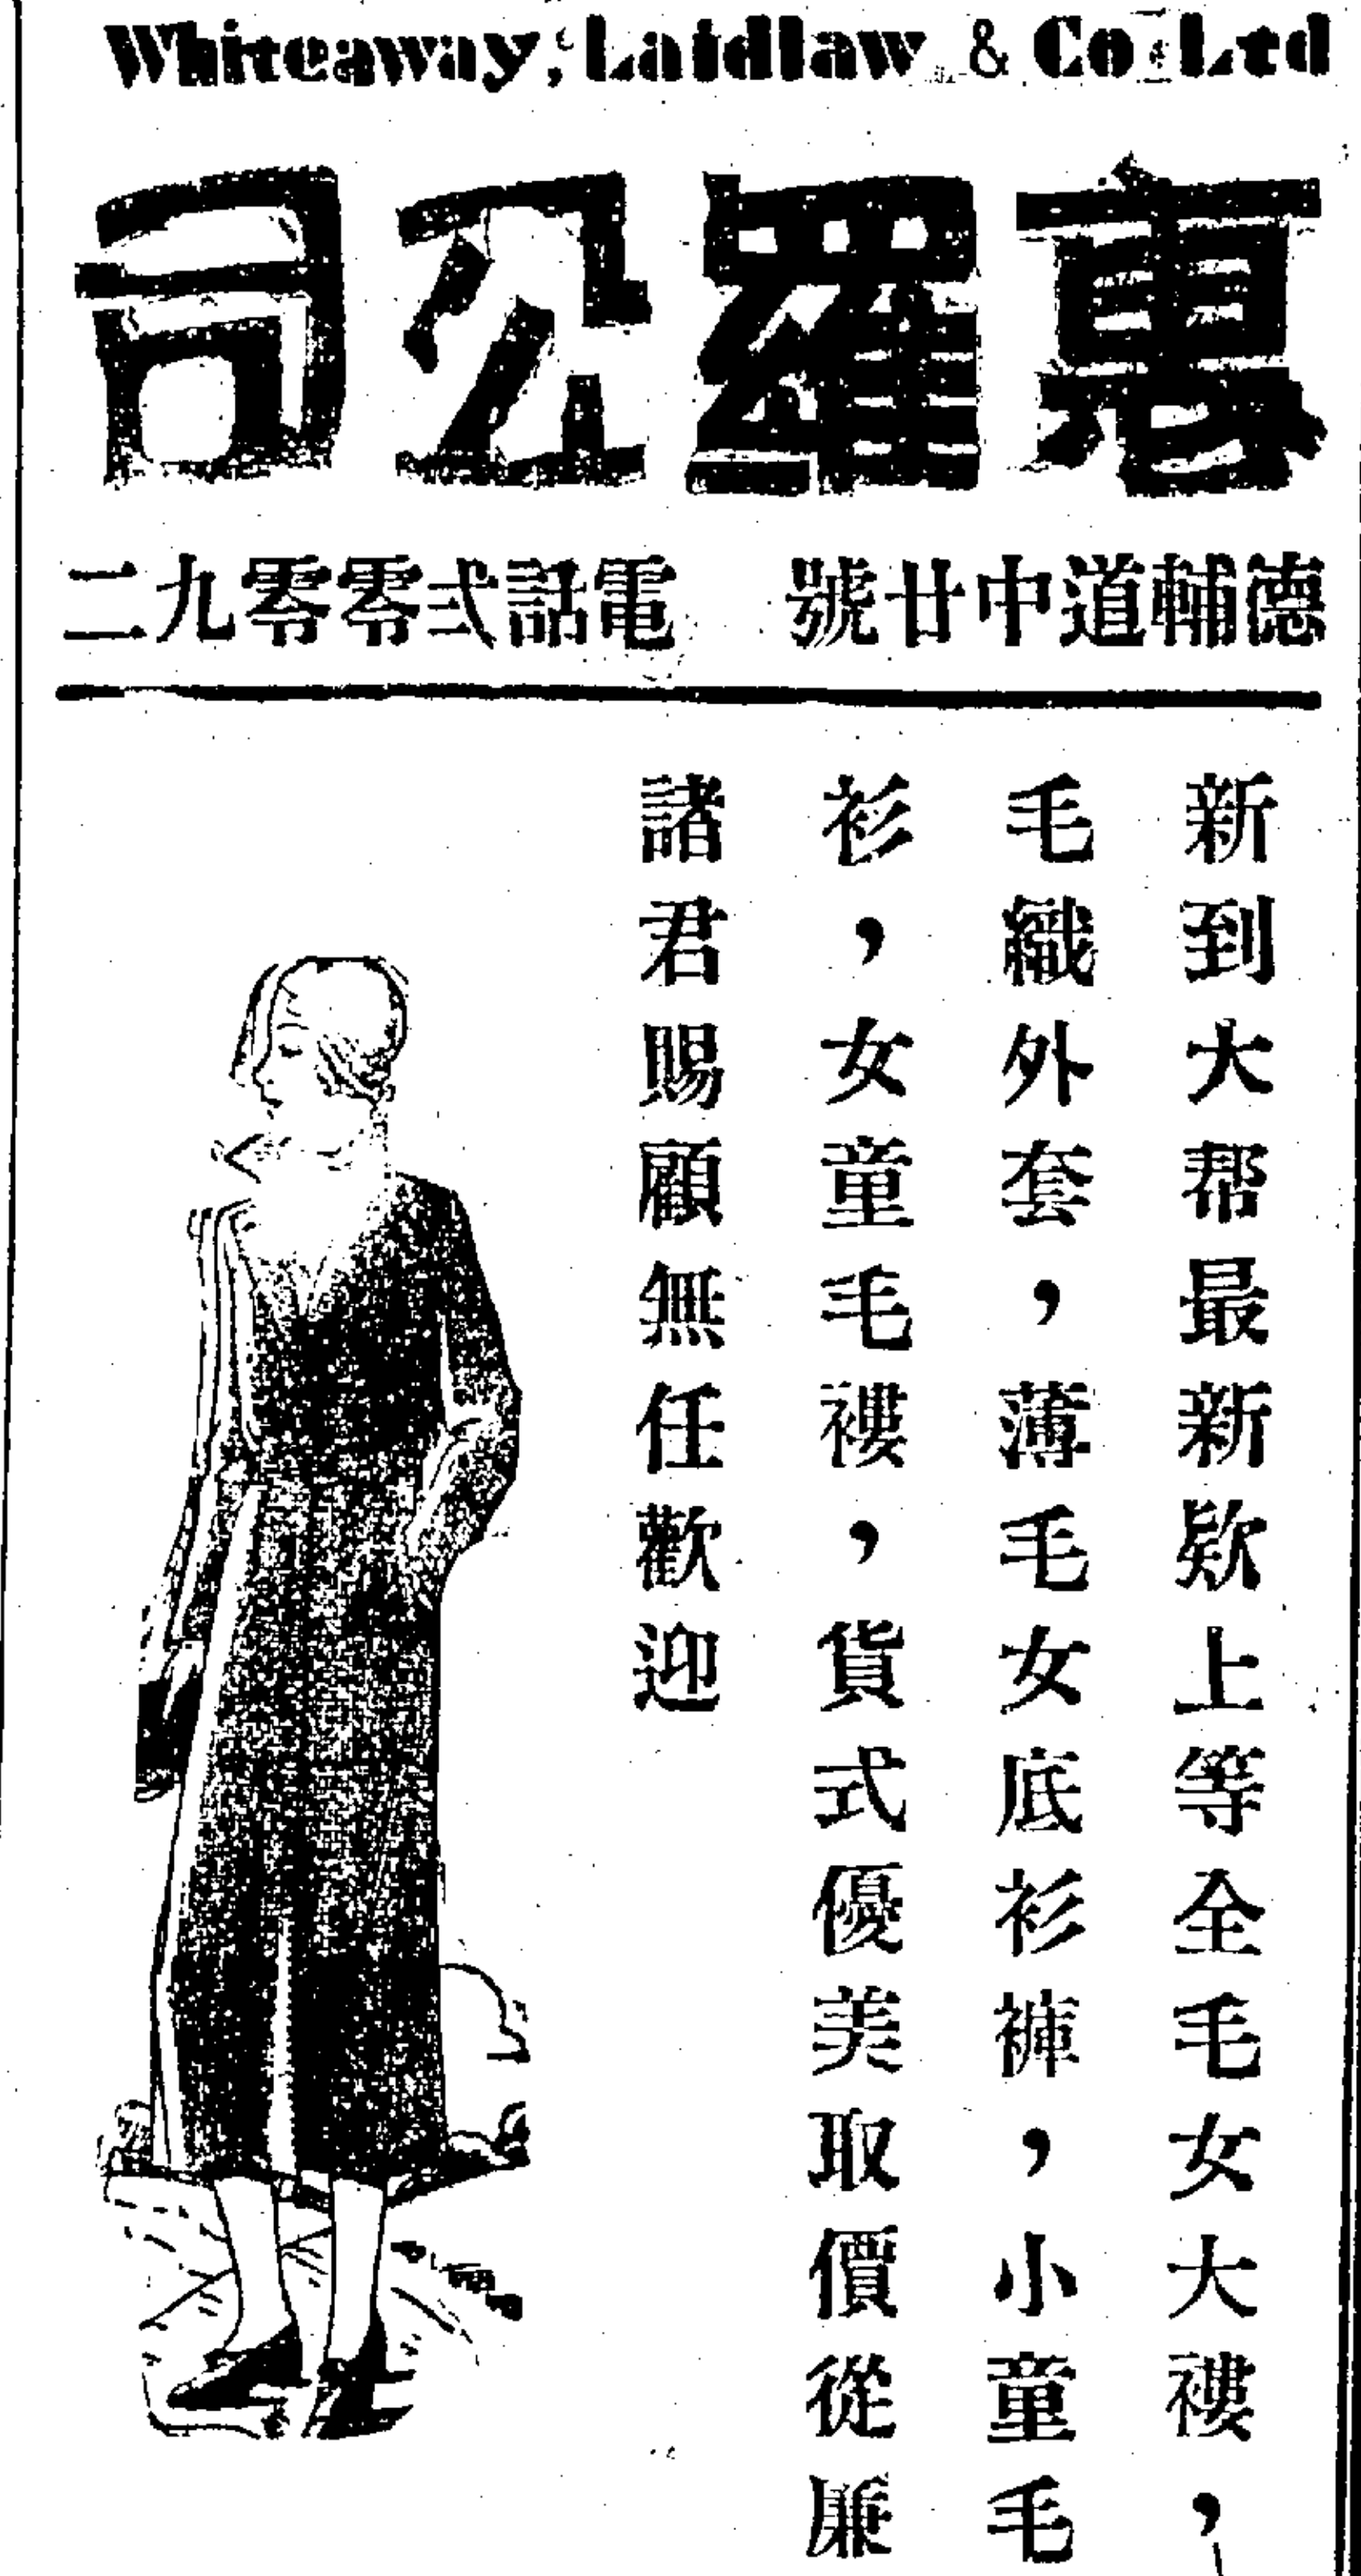 Whiteaway, Laidlaw & Co Ltd
惠羅公司
德輔道中廿號 電話弍零零九二
新到大帮最新欵上等全毛女大褸，
毛織外套，薄毛女底衫褲，小童毛
衫，女童毛褸，貨式優美取價從廉
諸君賜顧無任歡迎